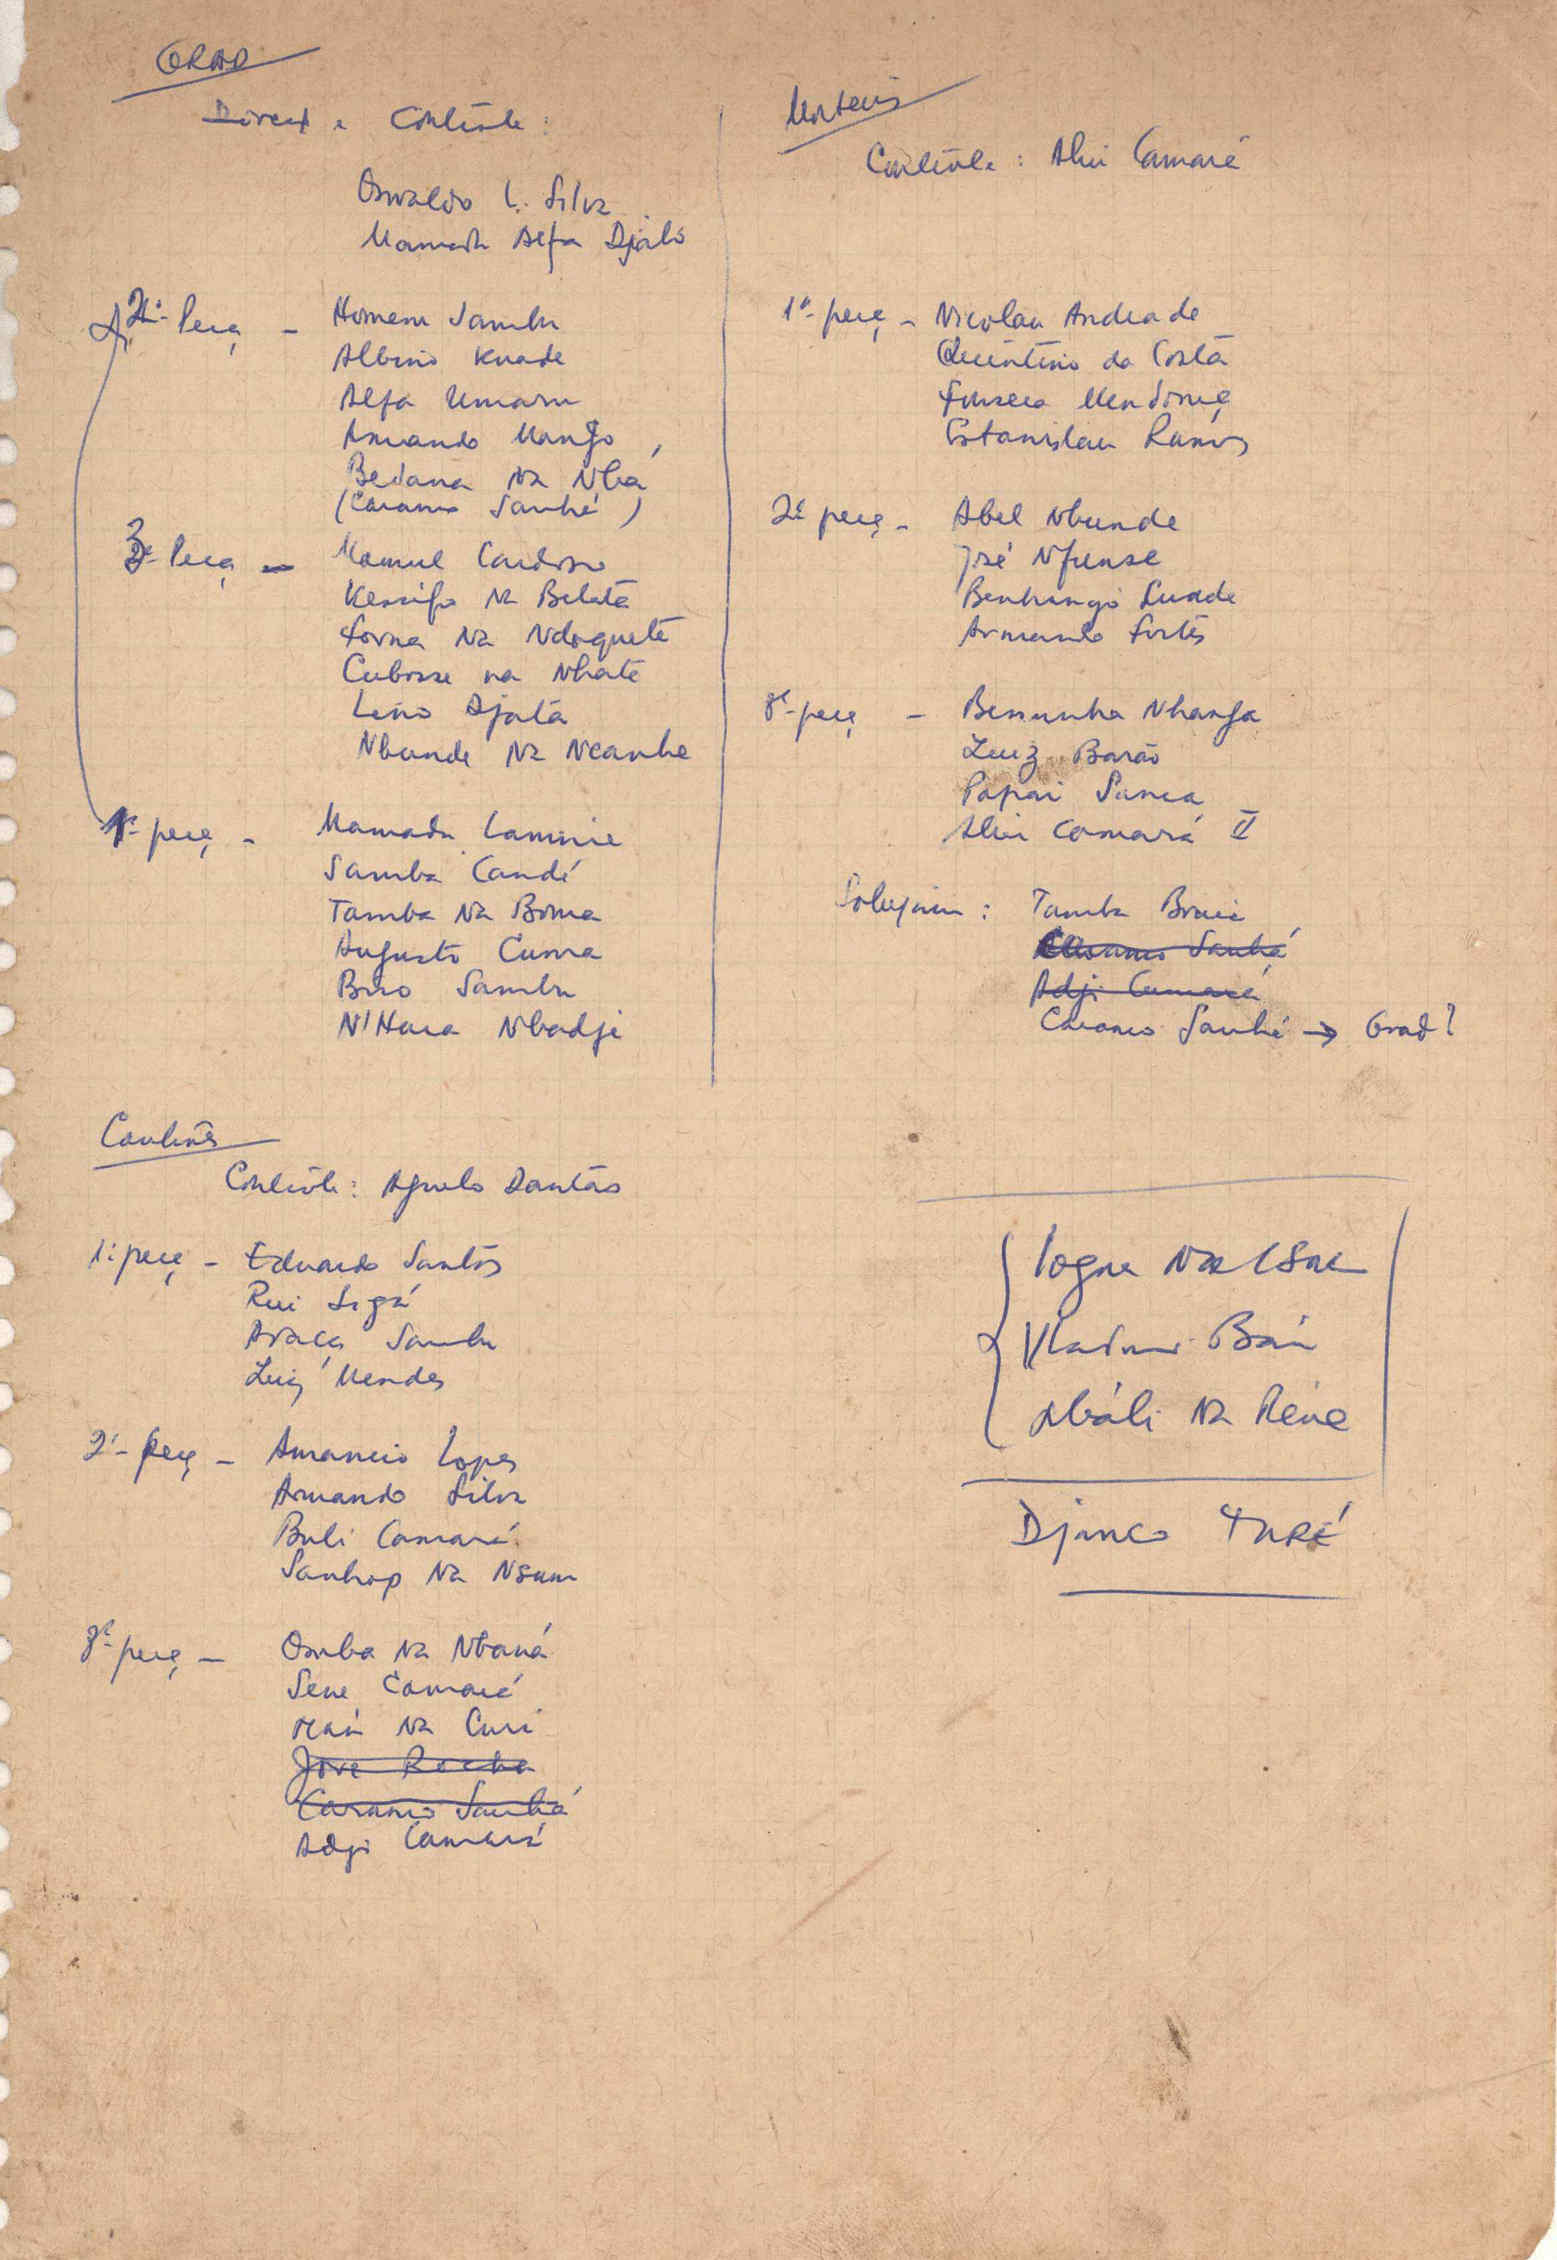 GRAD
Direct e Contrôle :
Osvaldo L. Silva
Mamadu Alfa Djaló
2ª Peça - Homem Sambu
Albino Knade
Alfa Umaru
Armando Mango
Bedana Na Nba
(Caramo Sanhá)
3ª Peça - Manuel Cardoso
Kessifo Na Belatá
Forna Na Ndoquetê
Cubosse na Nhate
Lino Djatá
Nbunde Na Ncanhe
1ª peça - Mamadu Lamine
Samba Candé
Tamba Na Boma
Augusto Cuma
Brao Sambu
N'Haca Nbadje
Morteiros
Contrôle : Aliu Camará
1ª peça - Nicolau Andrade
Quintino da Costa
Fonseca Mendonça
Estanislau Ramos
2ª peça - Abel Nbunde
José Nfunse
Benhingo Luade
Armando Fortes
3ª peça - Bemunha Nhanga
Luiz Barão
Papai Sanca
Aliu Camará II
Tamba
Caramo Sanhá
Adji Camará
Caramo Sanhá → Grad?
Canhões
Contrôle : Agnelo Dantas
1ª peça - Eduardo Santos
Rui Sigá
Araça Sambu
Luiz Mendes
2ª peça - Amancio Lopes
Armando Silva
Buli Camará
Sanhop Na Nsum
3ª peça - Osuba Na Nbaná
Sene Camará
Na Curi
José Rocha
Caramo Sanhá
Adji Camará
Iogna Na
Vladimir
Mbáli Na Rene
Djanco TURÉ